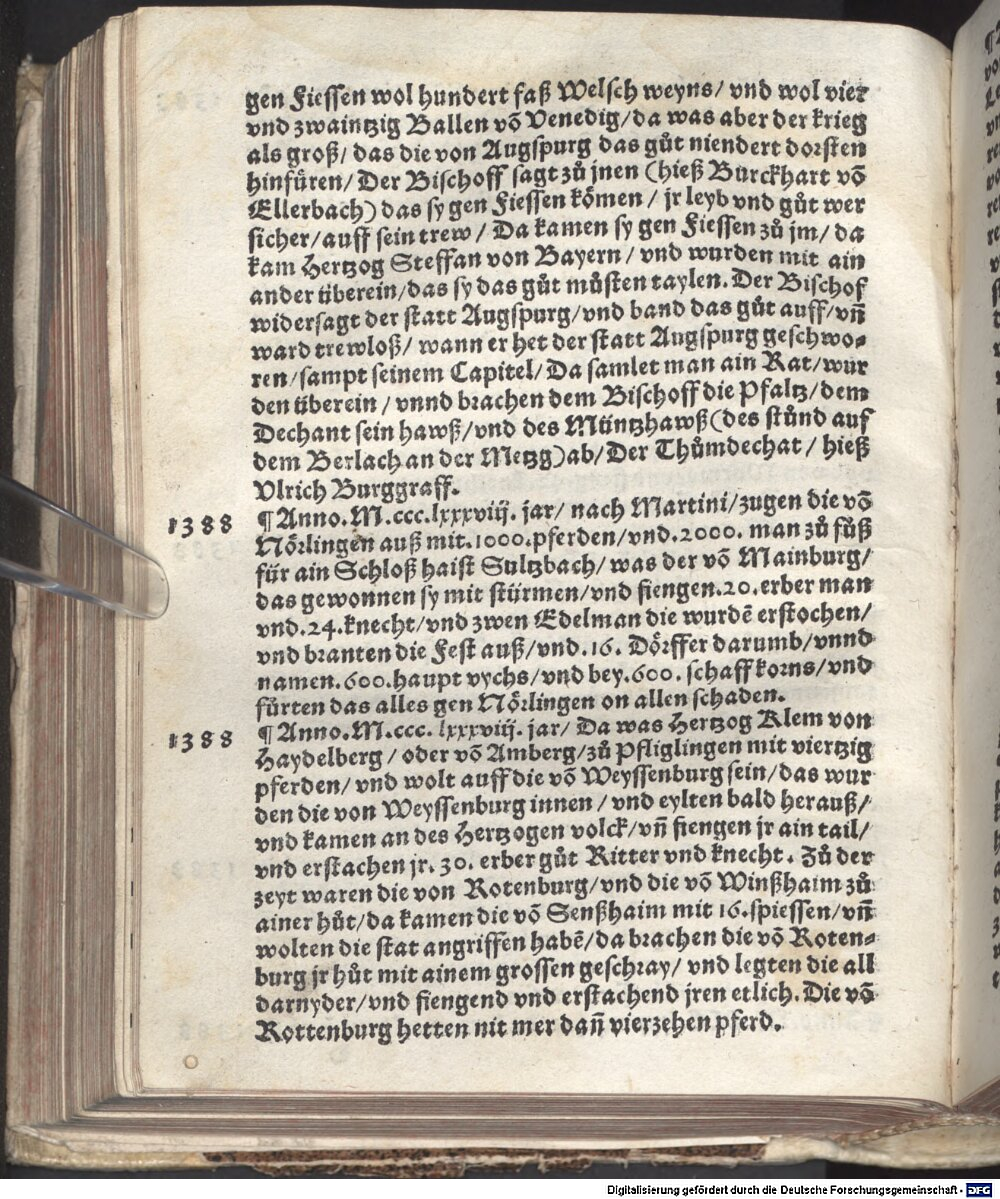 gen Fiessen wol hundert faß Welsch weyns/ vnd wol vier
vnd zwaintzig Ballen võ Venedig/da was aber der krieg
als groß/ das die von Augspurg das gůt niendert dorsten
hinfüren/ Der Bischoff sagt zů jnen (hieß Burckhart võ
Ellerbach) das sy gen Fiessen kömen / jr leyb vnd gůt wer
sicher/auff sein trew / Da kamen sy gen Fiessen zů jm/ da
kam Hertzog Steffan von Bayern / vnd wurden mit ain
ander überein/das sy das gůt můsten taylen. Der Bischof
widersagt der statt Augspurg/vnd band das gůt auff/vñ
ward trewloß/ wann er het der statt Augspurg geschwo-
ren/sampt seinem Capitel/Da samlet man ain Rat/wur
den überein / vnnd brachen dem Bischoff die Pfaltz/dem
Dechant sein hawß/vnd des Müntzhawß(des stůnd auf
dem Berlach an der Metzg)ab/Der Thůmdechat / hieß
Vlrich Burggraff.
1388 ¶Anno.M.ccc.lxxxviij. jar/ nach Martini/zugen die võ
Nörlingen auß mit.1000.pferden/vnd.2000. man zů fůß
für ain Schloß haist Sultzbach/was der võ Mainburg/
das gewonnen sy mit stürmen/vnd fiengen.20.erber man
vnd.24.knecht/vnd zwen Edelman die wurdē erstochen/
vnd branten die Fest auß/vnd.16. Dörffer darumb/vnnd
namen.600.haupt vychs/vnd bey.600. schaff korns/vnd
fürten das alles gen Nörlingen on allen schaden.
1388 ¶Anno.M.ccc. lxxxviij. jar/ Da was Hertzog Klem von
Haydelberg / oder võ Amberg/zů Pfliglingen mit viertzig
pferden/ vnd wolt auff die võ Weyssenburg sein/das wur
den die von Weyssenburg innen /vnd eylten bald herauß/
vnd kamen an des Hertzogen volck/vñ fiengen jr ain tail/
vnd erstachen jr. 30. erber gůt Ritter vnd knecht. Zů der
zeyt waren die von Rotenburg/vnd die võ Winßhaim zů
ainer hůt/da kamen die võ Senßhaim mit 16.spiessen/vñ
wolten die stat angriffen habē/da brachen die võ Roten-
burg jr hůt mit ainem grossen geschray/ vnd legten die all
darnyder/vnd fiengend vnd erstachend jren etlich. Die võ
Rottenburg hetten nit mer dañ vierzehen pferd.
Digitalisierung gefördert durch die Deutsche Forschungsgemeinschaft - DFG